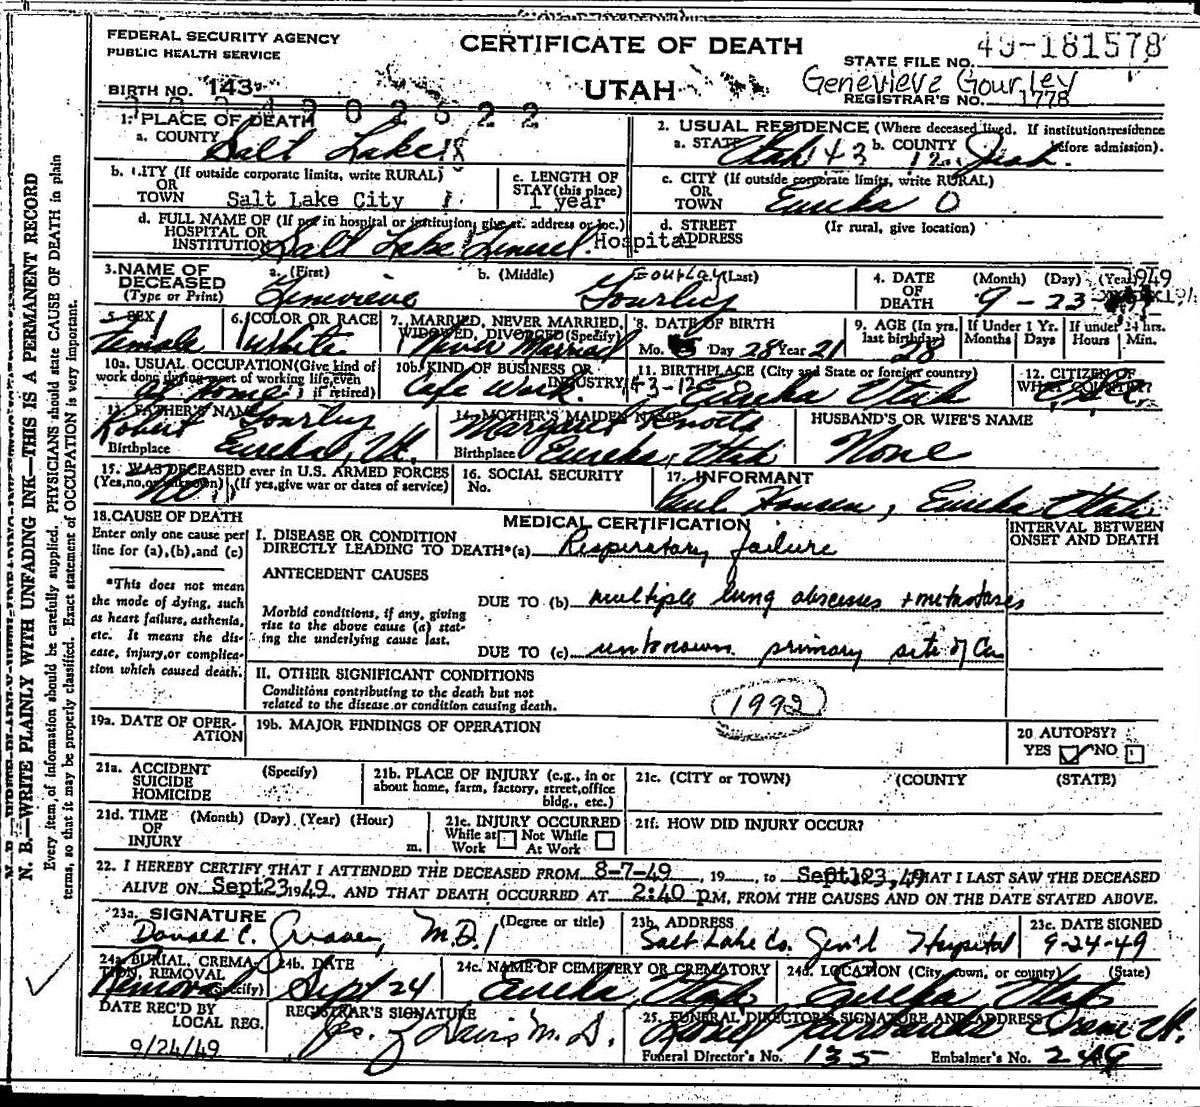 FEDERAL SECURITY AGENCY
PUBLIC HEALTH SERVICE
CERTIFICATE OF DEATH
UTAH
49-181578
STATE FILE NO.
Genevieve Gourley
BIRTH NO. 143
REGISTRAR'S NO. 1778
1. PLACE OF DEATH
a. COUNTY Salt Lake 18
2. USUAL RESIDENCE (Where deceased lived. If institution:residence before admission).
a. STATE Utah 43 b. COUNTY 12 Juab.
b. CITY (If outside corporate limits, write RURAL)
OR
TOWN Salt Lake City 1
c. LENGTH OF
STAY (this place)
1 year
c. CITY (If outside corporate limits, write RURAL)
OR
TOWN Eureka O
d. FULL NAME OF (If not in hospital or institution, give st. address or loc.)
HOSPITAL OR
INSTITUTION Salt Lake General Hospital
d. STREET (Ir rural, give location)
ADDRESS
3. NAME OF
DECEASED
(Type or Print)
a. (First) Genevieve
b. (Middle)
(Last) Gourley
Gourley
4. DATE
OF
DEATH
(Month) (Day) (Year)
9-23 1949
5. SEX
Female
6. COLOR OR RACE
White
7. MARRIED, NEVER MARRIED,
WIDOWED, DIVORCED (Specify)
Never Married
8. DATE OF BIRTH
Mo. Day 28 Year 21
9. AGE (In yrs.
last birthday)
28
If Under 1 Yr.
Months Days
If under 24 hrs.
Hours Min.
10a. USUAL OCCUPATION (Give kind of
work done during most of working life, even
if retired)
at home
10b. KIND OF BUSINESS OR
INDUSTRY
Cafe Work.
11. BIRTHPLACE (City and State or foreign country)
43-12 Eureka Utah
12. CITIZEN OF
WHAT COUNTRY?
U.S.A.
13. FATHER'S NAME
Robert Gourley
Birthplace Eureka, Ut.
14. MOTHER'S MAIDEN NAME
Margaret Knotts
Birthplace Eureka, Utah
HUSBAND'S OR WIFE'S NAME
None
15. WAS DECEASED ever in U.S. ARMED FORCES
(Yes, no, or unknown) (If yes, give war or dates of service)
No
16. SOCIAL SECURITY
No.
17. INFORMANT
Paul Hansen, Eureka Utah
18. CAUSE OF DEATH
Enter only one cause per
line for (a), (b), and (c)
*This does not mean
the mode of dying, such
as heart failure, asthenia,
etc. It means the dis-
ease, injury, or complica-
tion which caused death.
MEDICAL CERTIFICATION
INTERVAL BETWEEN
ONSET AND DEATH
I. DISEASE OR CONDITION
DIRECTLY LEADING TO DEATH*(a) Respiratory failure
ANTECEDENT CAUSES
Morbid conditions, if any, giving
rise to the above cause (a) stat-
ing the underlying cause last.
DUE TO (b) multiple lung abscesses + metastases
DUE TO (c) unknown primary site of Ca
II. OTHER SIGNIFICANT CONDITIONS
Conditions contributing to the death but not
related to the disease or condition causing death.
1992
19a. DATE OF OPER-
ATION
19b. MAJOR FINDINGS OF OPERATION
20 AUTOPSY?
YES NO
21a. ACCIDENT
SUICIDE
HOMICIDE
(Specify)
21b. PLACE OF INJURY (e.g., in or
about home, farm, factory, street, office
bldg., etc.)
21c. (CITY or TOWN) (COUNTY (STATE)
21d. TIME (Month) (Day) (Year) (Hour)
OF
INJURY m.
21e. INJURY OCCURRED
While at Not While
Work At Work
21f. HOW DID INJURY OCCUR?
22. I HEREBY CERTIFY THAT I ATTENDED THE DECEASED FROM 8-7-49, 19 to Sept 23, 49 THAT I LAST SAW THE DECEASED
ALIVE ON Sept 23 1949 AND THAT DEATH OCCURRED AT 2:40 p.M, FROM THE CAUSES AND ON THE DATE STATED ABOVE.
23a. SIGNATURE (Degree or title)
Donald C. M.D.
23b. ADDRESS
Salt Lake Co. Gen'l Hospital
23c. DATE SIGNED
9-24-49
24a. BURIAL, CREMA-
TION, REMOVAL
(Specify)
Removal
24b. DATE
Sept 24
24c. NAME OF CEMETERY OR CREMATORY
Eureka, Utah
24d. LOCATION (City, town, or county) (State)
Eureka Utah
DATE REC'D BY
LOCAL REG.
9/24/49
REGISTRAR'S SIGNATURE
Davis M.D.
25. FUNERAL DIRECTOR'S SIGNATURE AND ADDRESS
Orem Ut.
Funeral Director's No. 135 Embalmer's No. 249
N. B.—WRITE PLAINLY WITH UNFADING INK—THIS IS A PERMANENT RECORD
Every item of information should be carefully supplied. PHYSICIANS should state CAUSE OF DEATH in plain
terms, so that it may be properly classified. Exact statement of OCCUPATION is very important.